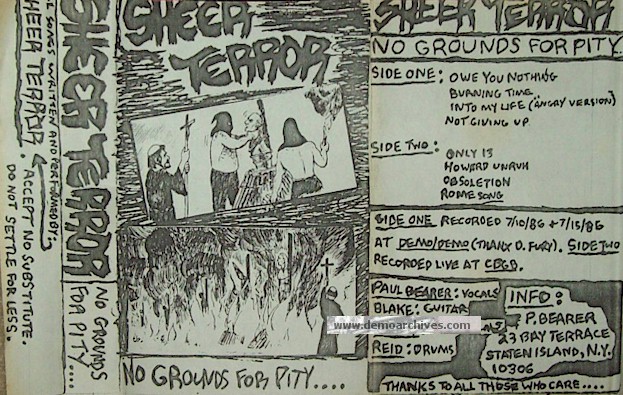 SONGS WRITTEN AND PERFORMED BY:
SHEER TERROR. ACCEPT NO SUBSTITUTE.
DO NOT SETTLE FOR LESS.
SHEER TERROR
NO GROUNDS
FOR PITY....
SHEER
TERROR
NO GROUNDS FOR PITY....
SHEER TERROR
NO GROUNDS FOR PITY.
SIDE ONE: OWE YOU NOTHING
BURNING TIME
INTO MY LIFE (ANGRY VERSION)
NOT GIVING UP
SIDE TWO:
ONLY 13
HOWARD UNRUH
OBSOLETION
ROME SONG
SIDE ONE RECORDED 7/10/86 + 7/15/86
AT DEMO/DEMO (THANX D. FURY). SIDE TWO
RECORDED LIVE AT CBGB.
PAUL BEARER: VOCALS
BLAKE: GUITAR
www.demoarchives.com
REID: DRUMS
INFO:
P. BEARER
23 BAY TERRACE
STATEN ISLAND, N.Y.
10306
THANKS TO ALL THOSE WHO CARE....